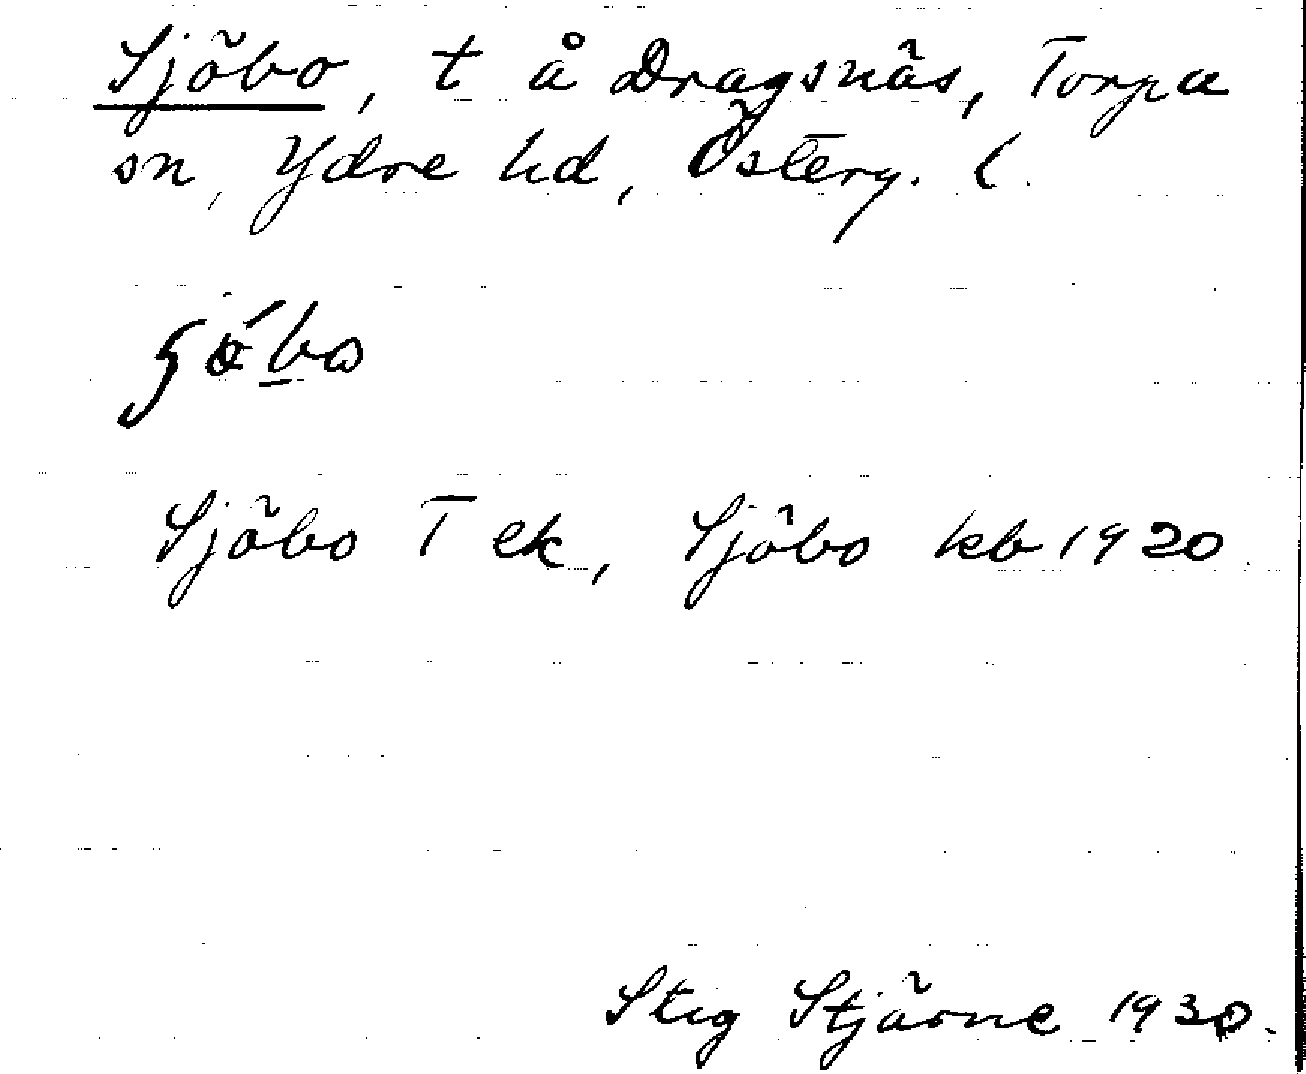 Sjöbo, t å Dragsnäs, Torpa
sn, Ydre hd, Österg. l.
Sjöbo T ek, Sjöbo kb 1920
Stig Stjärne 1930.